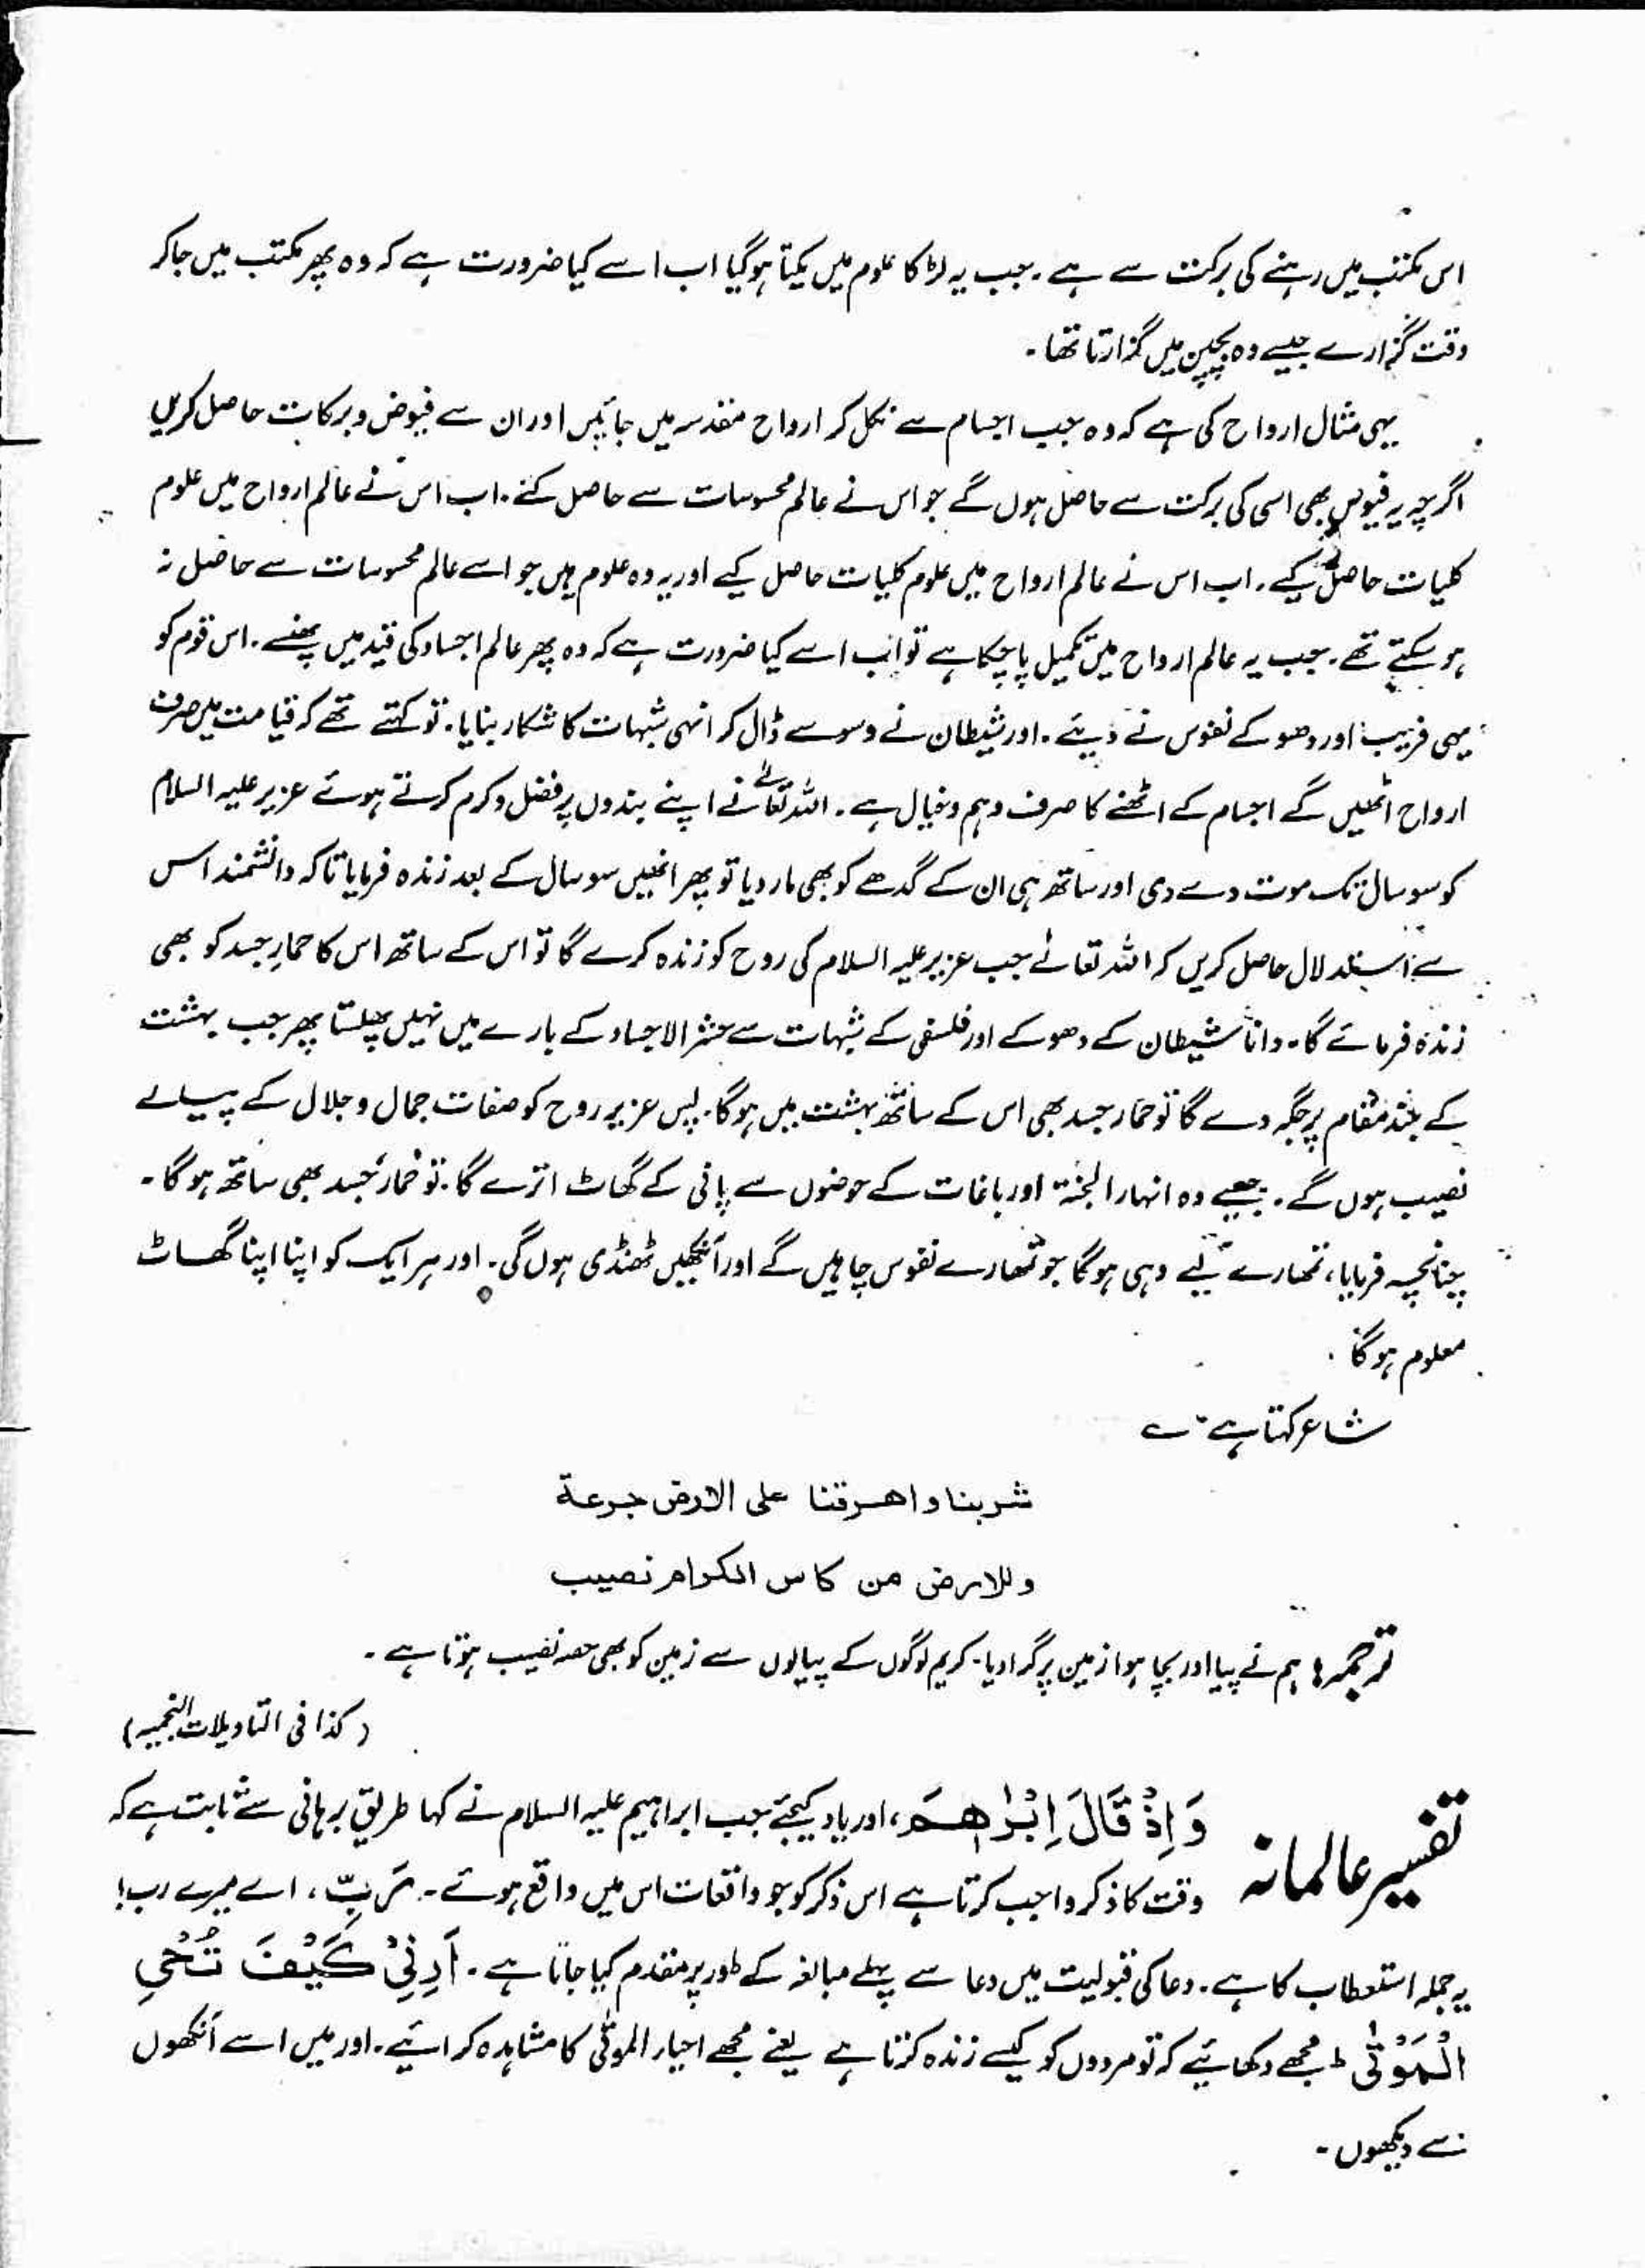 اس مکتب میں رہنے کی برکت سے ہے ۔ جب یہ لڑکا علوم میں یکتا ہو گیا اب اسے کیا ضرورت ہے کہ وہ پھر مکتب میں جا کر
وقت گزارے جیسے وہ بچپن میں گزارتا تھا ۔
یہی مثال ارواح کی ہے کہ وہ جب اجسام سے نکل کر ارواح مقدسہ میں جائیں اور ان سے فیوض و برکات حاصل کریں
اگرچہ یہ فیوض بھی اسی کی برکت سے حاصل ہوں گے جو اس نے عالم محسوسات سے حاصل کئے ۔ اب اس نے عالم ارواح میں علوم
کلیات حاصل کیے ۔ اب اس نے عالم ارواح میں علوم کلیات حاصل کیے اور یہ وہ علوم ہیں جو اسے عالم محسوسات سے حاصل نہ
ہو سکتے تھے ۔ جب یہ عالم ارواح میں تکمیل پا چکا ہے تو اب اسے کیا ضرورت ہے کہ وہ پھر عالم اجساد کی قید میں پھنسے ۔ اس قوم کو
یہی فریب اور دھوکے نفوس نے دیئے ۔ اور شیطان نے وسوسے ڈال کر انہی شبہات کا شکار بنایا ۔ تو کہتے تھے کہ قیامت میں صرف
ارواح اٹھیں گے اجسام کے اٹھنے کا صرف وہم و خیال ہے ۔ اللہ تعالٰے نے اپنے بندوں پر فضل و کرم کرتے ہوئے عزیر علیہ السلام
کو سو سال تک موت دے دی اور ساتھ ہی ان کے گدھے کو بھی مار دیا تو پھر انھیں سو سال کے بعد زندہ فرمایا تاکہ دانشمند اس
سے استدلال حاصل کریں کہ اللہ تعالٰے جب عزیر علیہ السلام کی روح کو زندہ کرے گا تو اس کے ساتھ اس کا حمارِ جسد کو بھی
زندہ فرمائے گا ۔ دانا شیطان کے دھوکے اور فلسفی کے شبہات سے حشر الاجساد کے بارے میں نہیں پھسلتا پھر جب بہشت
کے بلند مقام پر جگہ دے گا تو حمار جسد بھی اس کے ساتھ بہشت میں ہو گا ۔ پس عزیر روح کو صفات جمال و جلال کے پیالے
نصیب ہوں گے ۔ جیسے وہ انہار الجنۃ اور باغات کے حوضوں سے پانی کے گھاٹ اترے گا ۔ تو حمار جسد بھی ساتھ ہو گا ۔
چنانچہ فرمایا، تمھارے لیے وہی ہو گا جو تمھارے نفوس چاہیں گے اور آنکھیں ٹھنڈی ہوں گی ۔ اور ہر ایک کو اپنا اپنا گھاٹ
معلوم ہو گا ۔
شاعر کہتا ہے ؎
شربنا و اھرقنا علی الارض جرعۃ
وللارض من کاس الکرام نصیب
ترجمہ : ہم نے پیا اور بچا ہوا زمین پر گرا دیا ۔ کریم لوگوں کے پیالوں سے زمین کو بھی حصہ نصیب ہوتا ہے ۔
(کذا فی التاویلات النجمیہ)
تفسیر عالمانہ
وَ اِذْ قَالَ اِبْرٰھٖمَ، اور یاد کیجئے جب ابراہیم علیہ السلام نے کہا طریقِ برہانی سے ثابت ہے کہ
وقت کا ذکر واجب کرتا ہے اس ذکر کو جو واقعات اس میں واقع ہوئے ۔ رَبِّ ، اے میرے رب!
یہ جملہ استعطاب کا ہے ۔ دعا کی قبولیت میں دعا سے پہلے مبالغہ کے طور پر مقدم کیا جاتا ہے ۔ اَرِنِیْ کَیْفَ تُحْیِ
الْمَوْتٰی ط مجھے دکھائیے کہ تو مردوں کو کیسے زندہ کرتا ہے یعنے مجھے احیار الموتٰی کا مشاہدہ کرائیے ۔ اور میں اسے آنکھوں
سے دیکھوں ۔